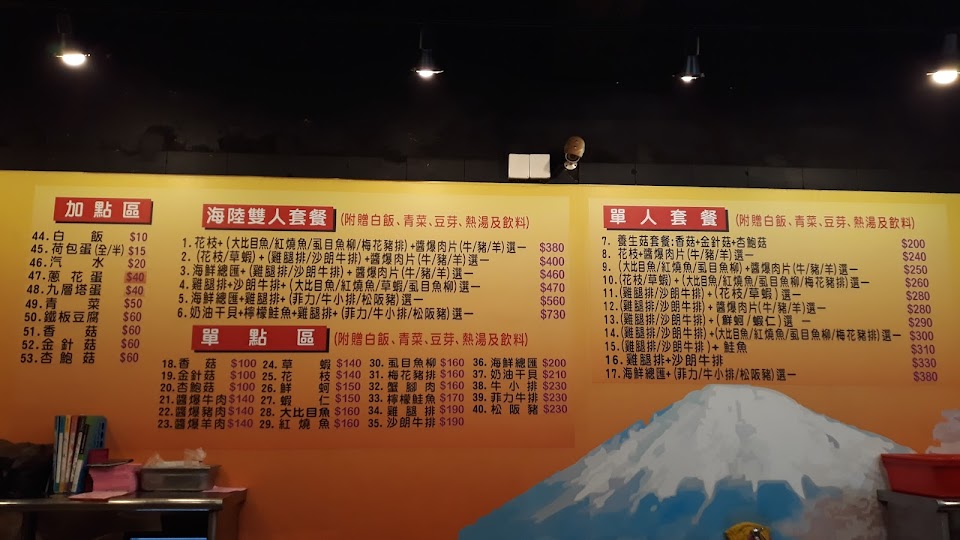 加點區
44.白飯 $10
45.荷包蛋(全/半) $15
46.汽水 $20
47.蔥花蛋 $40
48.九層塔蛋 $40
49.青菜 $50
50.鐵板豆腐 $60
51.香菇 $60
52.金針菇 $60
53.杏鮑菇 $60
海陸雙人套餐 (附贈白飯、青菜、豆芽、熱湯及飲料)
1.花枝+(大比目魚/紅燒魚/虱目魚柳/梅花豬排)+醬爆肉片(牛/豬/羊)選一 $380
2.(花枝/草蝦)+(雞腿排/沙朗牛排)+醬爆肉片(牛/豬/羊)選一 $400
3.海鮮總匯+(雞腿排/沙朗牛排)+醬爆肉片(牛/豬/羊)選一 $460
4.雞腿排+沙朗牛排+(大比目魚/紅燒魚/草蝦/虱目魚柳)選一 $470
5.海鮮總匯+雞腿排+(菲力/牛小排/松阪豬)選一 $560
6.奶油干貝+檸檬鮭魚+雞腿排+(菲力/牛小排/松阪豬)選一 $730
單點區 (附贈白飯、青菜、豆芽、熱湯及飲料)
18.香菇 $100
19.金針菇 $100
20.杏鮑菇 $100
21.醬爆牛肉 $140
22.醬爆豬肉 $140
23.醬爆羊肉 $140
24.草蝦 $140
25.花枝 $140
26.鮮蚵 $150
27.蝦仁 $150
28.大比目魚 $160
29.紅燒魚 $160
30.虱目魚柳 $160
31.梅花豬排 $160
32.蟹腳肉 $160
33.檸檬鮭魚 $170
34.雞腿排 $190
35.沙朗牛排 $190
36.海鮮總匯 $200
37.奶油干貝 $210
38.牛小排 $230
39.菲力牛排 $230
40.松阪豬 $230
單人套餐 (附贈白飯、青菜、豆芽、熱湯及飲料)
7.養生菇套餐:香菇+金針菇+杏鮑菇 $200
8.花枝+醬爆肉片(牛/豬/羊)選一 $240
9.(大比目魚/紅燒魚/虱目魚柳)+醬爆肉片(牛/豬/羊)選一 $250
10.(花枝/草蝦)+(大比目魚/紅燒魚/虱目魚柳/梅花豬排)選一 $260
11.(雞腿排/沙朗牛排)+(花枝/草蝦)選一 $280
12.(雞腿排/沙朗牛排)+醬爆肉片(牛/豬/羊)選一 $280
13.(雞腿排/沙朗牛排)+(鮮蚵/蝦仁)選一 $290
14.(雞腿排/沙朗牛排)+(大比目魚/紅燒魚/虱目魚柳/梅花豬排)選一 $300
15.(雞腿排/沙朗牛排)+鮭魚 $310
16.雞腿排+沙朗牛排 $330
17.海鮮總匯+(菲力/牛小排/松阪豬)選一 $380